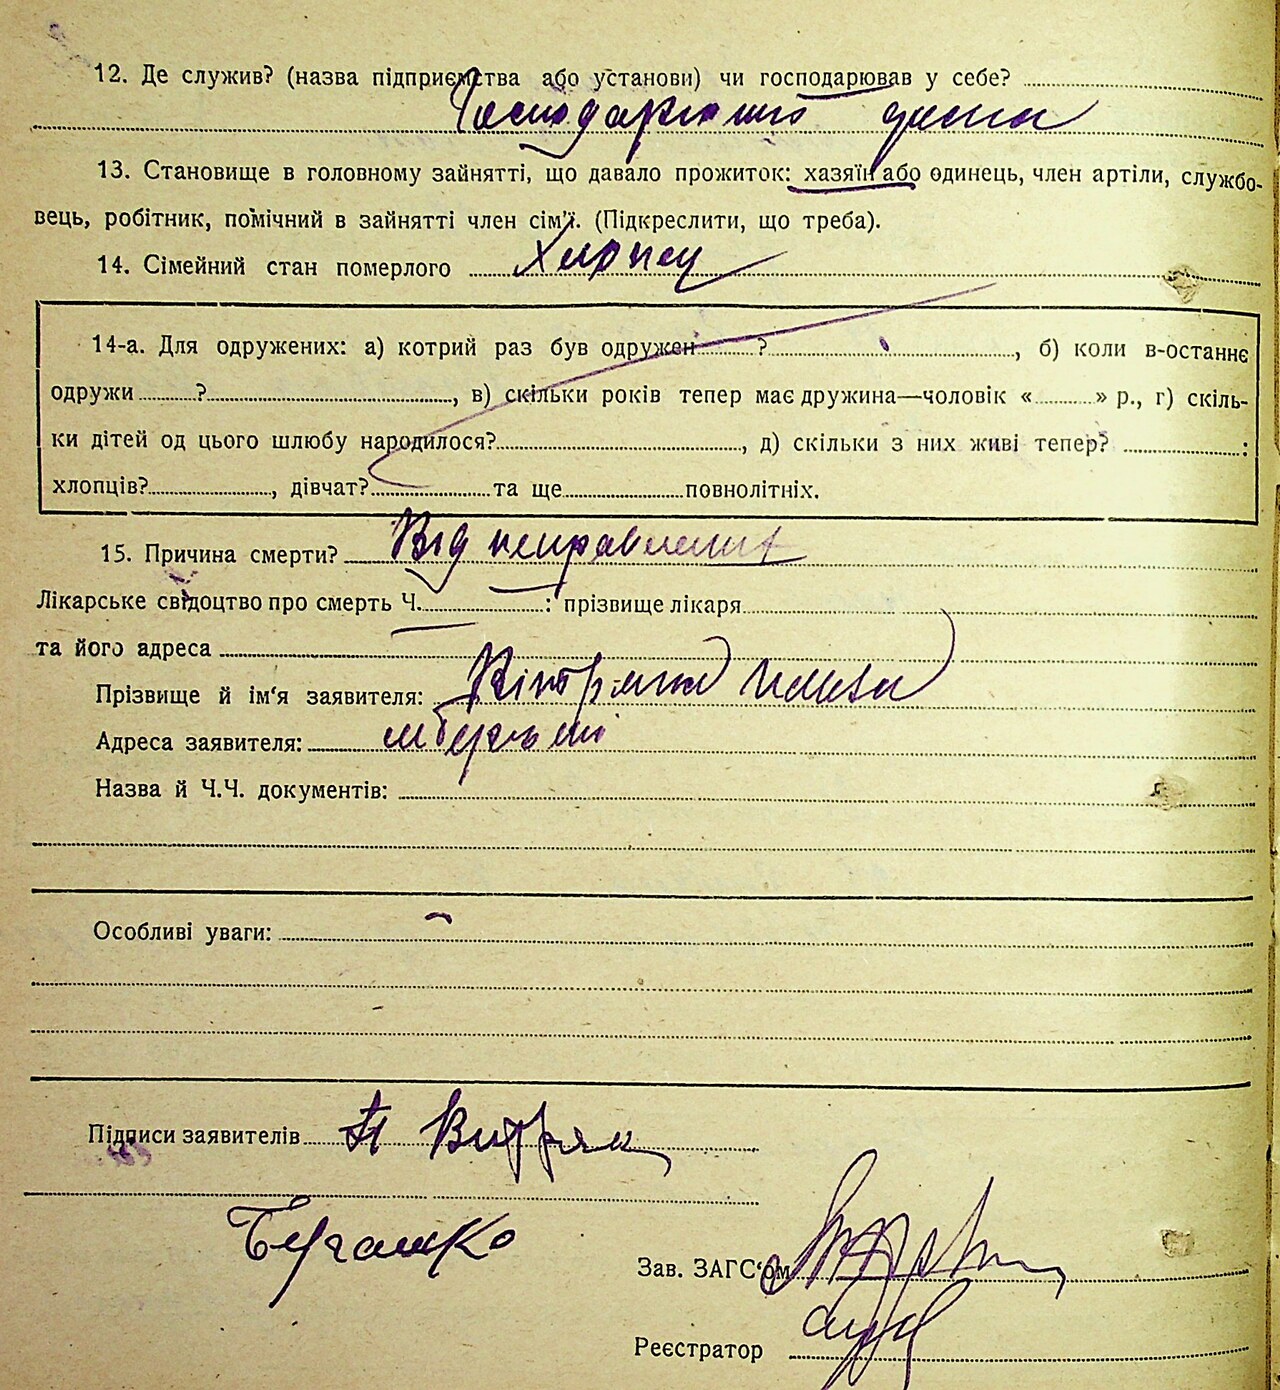 12. Де служив? (назва підприємства або установи) чи господарював у себе?
13. Становище в головному зайнятті, що давало прожиток: хазяїн або одинець, член артіли, службо-
вець, робітник, помічний в зайнятті член сім'ї. (Підкреслити, що треба).
14. Сімейний стан померлого Хлопец
14-а. Для одружених: а) котрий раз був одружен ? , б) коли в-останнє
одружи ? , в) скільки років тепер має дружина—чоловік « » р., г) скіль-
ки дітей од цього шлюбу народилося? , д) скільки з них живі тепер? :
хлопців? , дівчат? та ще повнолітніх.
15. Причина смерти? Від
Лікарське свідоцтво про смерть Ч. : прізвище лікаря
та його адреса
Прізвище й ім'я заявителя:
Адреса заявителя:
Назва й Ч.Ч. документів:
Особливі уваги:
Підписи заявителів П Витряк
Зав. ЗАГС'ом
Реєстратор